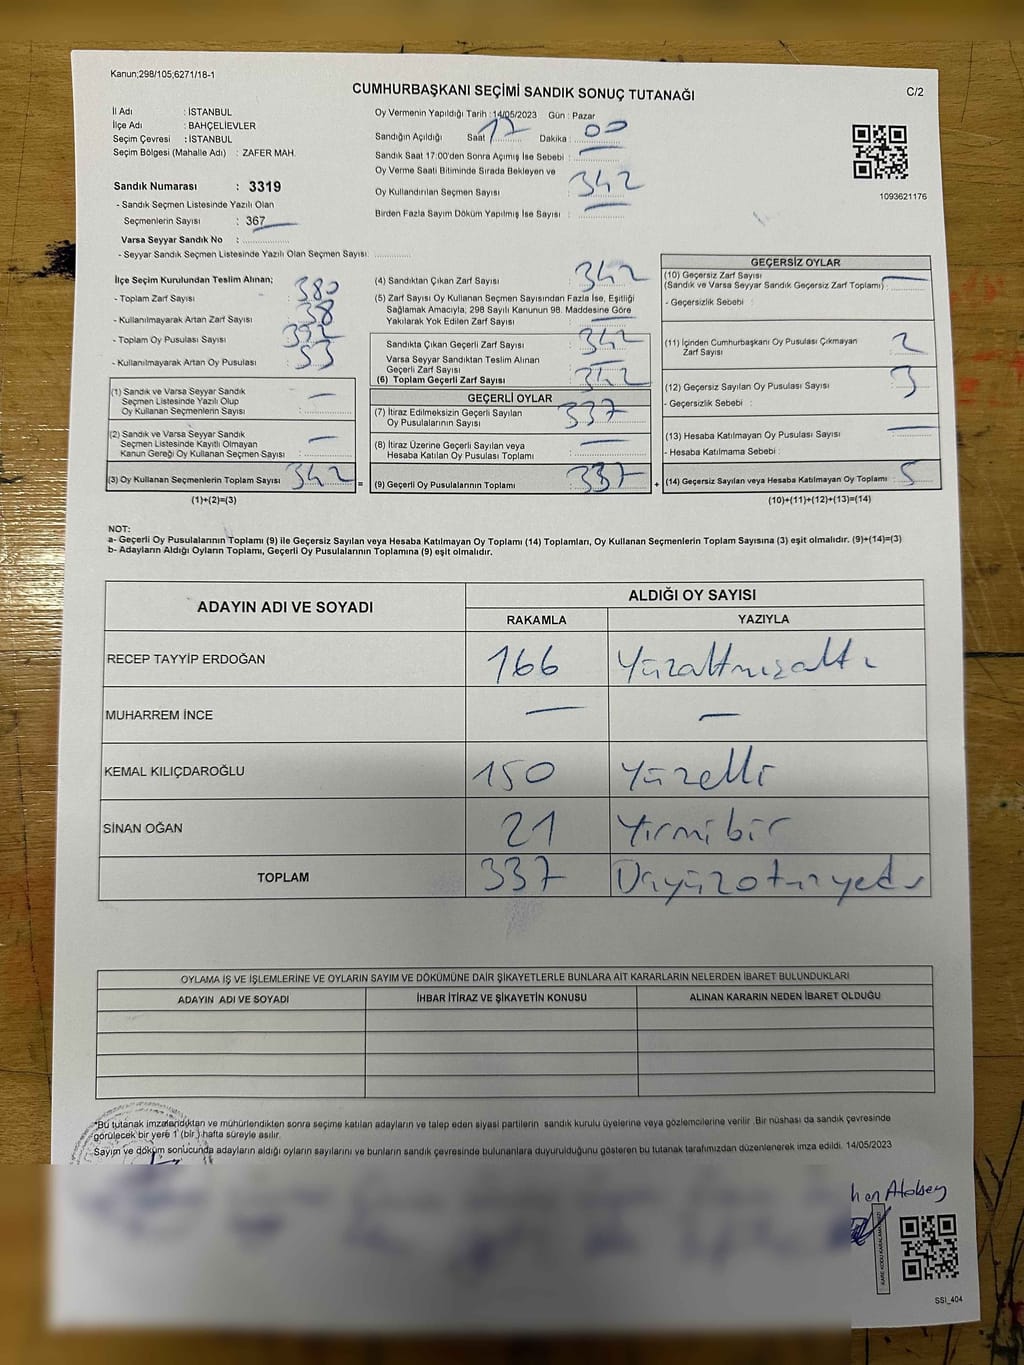 Kanun;298/105;6271/18-1
CUMHURBAŞKANI SEÇİMİ SANDIK SONUÇ TUTANAĞI
C/2
İl Adı : İSTANBUL
İlçe Adı : BAHÇELİEVLER
Seçim Çevresi : İSTANBUL
Seçim Bölgesi (Mahalle Adı) : ZAFER MAH.
Sandık Numarası : 3319
- Sandık Seçmen Listesinde Yazılı Olan
Seçmenlerin Sayısı : 367
Varsa Seyyar Sandık No :
- Seyyar Sandık Seçmen Listesinde Yazılı Olan Seçmen Sayısı:
Oy Vermenin Yapıldığı Tarih : 14/05/2023 Gün : Pazar
Sandığın Açıldığı Saat : 17 Dakika : 00
Sandık Saat 17:00'den Sonra Açımış İse Sebebi :
Oy Verme Saati Bitiminde Sırada Bekleyen ve
Oy Kullandırılan Seçmen Sayısı : 342
Birden Fazla Sayım Döküm Yapılmış İse Sayısı :
1093621176
İlçe Seçim Kurulundan Teslim Alınan;
- Toplam Zarf Sayısı : 380
- Kullanılmayarak Artan Zarf Sayısı : 38
- Toplam Oy Pusulası Sayısı : 392
- Kullanılmayarak Artan Oy Pusulası : 53
(1) Sandık ve Varsa Seyyar Sandık
Seçmen Listesinde Yazılı Olup
Oy Kullanan Seçmenlerin Sayısı : —
(2) Sandık ve Varsa Seyyar Sandık
Seçmen Listesinde Kayıtlı Olmayan
Kanun Gereği Oy Kullanan Seçmen Sayısı : —
(3) Oy Kullanan Seçmenlerin Toplam Sayısı : 342 =
(1)+(2)=(3)
(4) Sandıktan Çıkan Zarf Sayısı : 342
(5) Zarf Sayısı Oy Kullanan Seçmen Sayısından Fazla İse, Eşitliği
Sağlamak Amacıyla; 298 Sayılı Kanunun 98. Maddesine Göre
Yakılarak Yok Edilen Zarf Sayısı : —
Sandıkta Çıkan Geçerli Zarf Sayısı : 342
Varsa Seyyar Sandıktan Teslim Alınan
Geçerli Zarf Sayısı : —
(6) Toplam Geçerli Zarf Sayısı : 342
GEÇERLİ OYLAR
(7) İtiraz Edilmeksizin Geçerli Sayılan
Oy Pusulalarının Sayısı : 337
(8) İtiraz Üzerine Geçerli Sayılan veya
Hesaba Katılan Oy Pusulası Toplamı : —
(9) Geçerli Oy Pusulalarının Toplamı : 337 +
GEÇERSİZ OYLAR
(10) Geçersiz Zarf Sayısı
(Sandık ve Varsa Seyyar Sandık Geçersiz Zarf Toplamı) : —
- Geçersizlik Sebebi :
(11) İçinden Cumhurbaşkanı Oy Pusulası Çıkmayan
Zarf Sayısı : 2
(12) Geçersiz Sayılan Oy Pusulası Sayısı : 3
- Geçersizlik Sebebi :
(13) Hesaba Katılmayan Oy Pusulası Sayısı : —
- Hesaba Katılmama Sebebi :
(14) Geçersiz Sayılan veya Hesaba Katılmayan Oy Toplamı : 5
(10)+(11)+(12)+(13)=(14)
NOT:
a- Geçerli Oy Pusulalarının Toplamı (9) ile Geçersiz Sayılan veya Hesaba Katılmayan Oy Toplamı (14) Toplamları, Oy Kullanan Seçmenlerin Toplam Sayısına (3) eşit olmalıdır. (9)+(14)=(3)
b- Adayların Aldığı Oyların Toplamı, Geçerli Oy Pusulalarının Toplamına (9) eşit olmalıdır.
ADAYIN ADI VE SOYADI ALDIĞI OY SAYISI
RAKAMLA YAZIYLA
RECEP TAYYİP ERDOĞAN 166 Yüzaltmışaltı
MUHARREM İNCE — —
KEMAL KILIÇDAROĞLU 150 Yüzelli
SİNAN OĞAN 21 Yirmibir
TOPLAM 337 Üçyüzotuzyedi
OYLAMA İŞ VE İŞLEMLERİNE VE OYLARIN SAYIM VE DÖKÜMÜNE DAİR ŞİKAYETLERLE BUNLARA AİT KARARLARIN NELERDEN İBARET BULUNDUKLARI
ADAYIN ADI VE SOYADI İHBAR İTİRAZ VE ŞİKAYETİN KONUSU ALINAN KARARIN NEDEN İBARET OLDUĞU
*Bu tutanak imzalandıktan ve mühürlendikten sonra seçime katılan adayların ve talep eden siyasi partilerin sandık kurulu üyelerine veya gözlemcilerine verilir. Bir nüshası da sandık çevresinde
görülecek bir yere 1 (bir) hafta süreyle asılır.
Sayım ve döküm sonucunda adayların aldığı oyların sayılarını ve bunların sandık çevresinde bulunanlara duyurulduğunu gösteren bu tutanak tarafımızdan düzenlenerek imza edildi. 14/05/2023
SSI_404